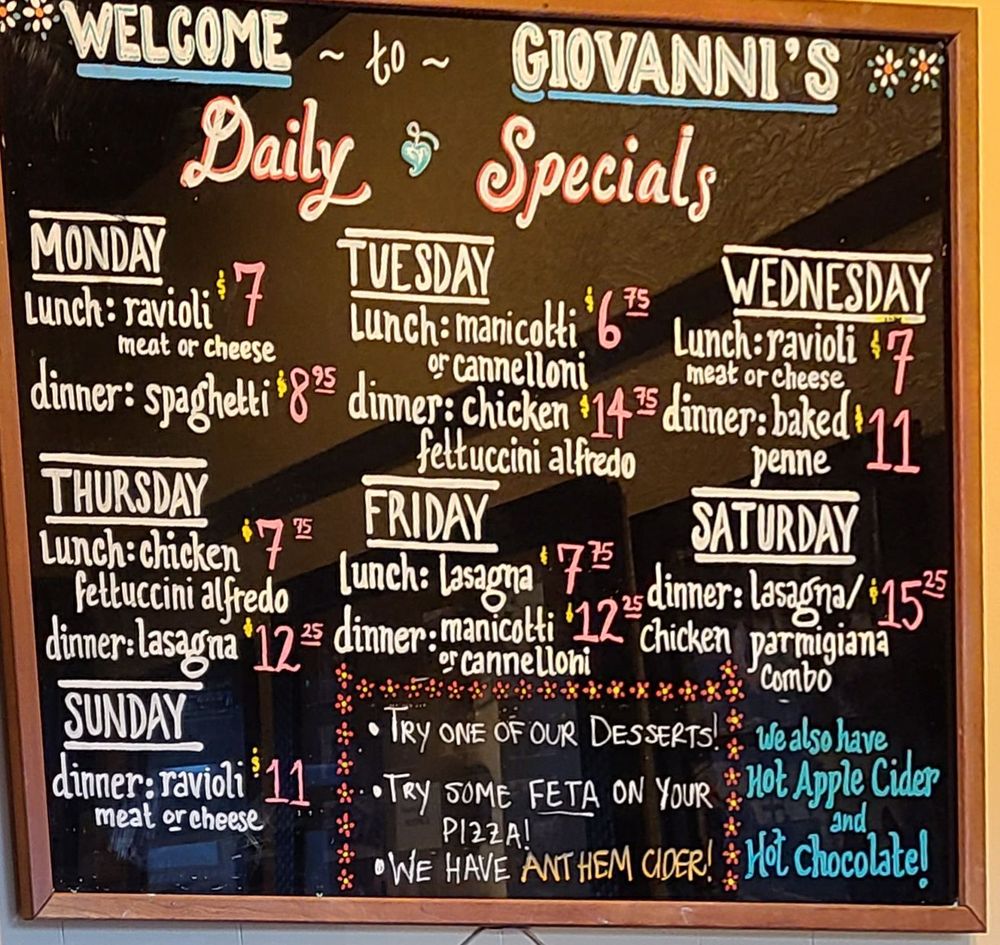 WELCOME ~ to ~ GIOVANNI'S
Daily Specials
MONDAY
Lunch: ravioli $7
meat or cheese
dinner: spaghetti $8.95
TUESDAY
Lunch: manicotti $6.75
or cannelloni
dinner: chicken $14.75
fettuccini alfredo
WEDNESDAY
Lunch: ravioli $7
meat or cheese
dinner: baked $11
penne
THURSDAY
Lunch: chicken $7.75
fettuccini alfredo
dinner: lasagna $12.25
FRIDAY
lunch: lasagna $7.75
dinner: manicotti $12.25
or cannelloni
SATURDAY
dinner: lasagna/ $15.25
chicken parmigiana
combo
SUNDAY
dinner: ravioli $11
meat or cheese
• TRY ONE OF OUR DESSERTS!
• TRY SOME FETA ON YOUR
PIZZA!
• WE HAVE ANTHEM CIDER!
We also have
Hot Apple Cider
and
Hot Chocolate!